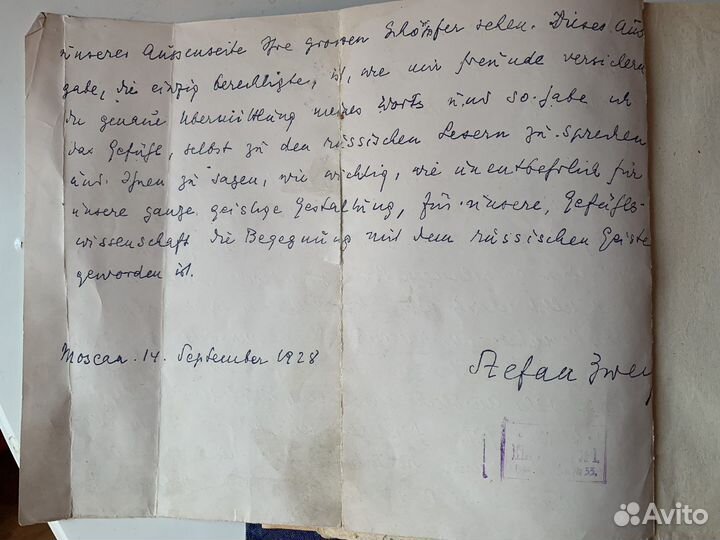 unseres Aussenseite Ihre grossen Schöpfer sehen. Dieses Aus
gabe, die einzig berechtigte, ist, wie mir freunde versichern
die genaue Übermittlung meines Worts und so habe ich
das Gefühl, selbst zu den russischen Lesern zu sprechen
und Ihnen zu sagen, wie wichtig, wie unentbehrlich für
unsere ganze geistige Gestaltung, für unsere, Gefühls-
wissenschaft die Begegnung mit dem russischen Geiste
geworden ist.
Moscau. 14. September 1928
Stefan Zweig
Avito